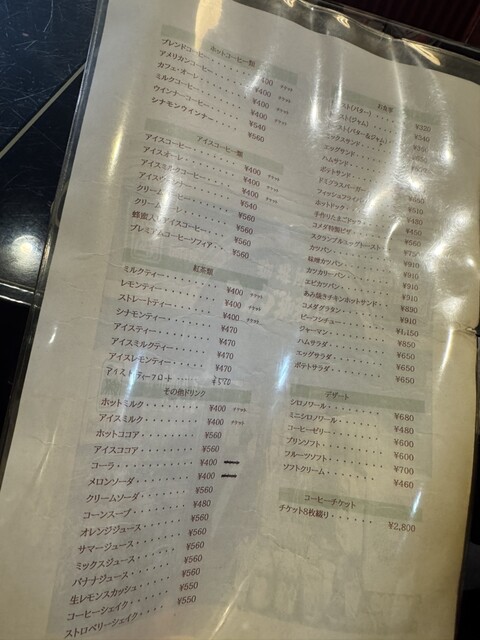 ホットコーヒー類
ブレンドコーヒー・・・・・・・ ¥400 チケット
アメリカンコーヒー・・・・・ ¥400 チケット
カフェ・オーレ・・・・・・・・ ¥400 チケット
ミルクコーヒー・・・・・・・・ ¥400 チケット
ウインナーコーヒー・・・・・ ¥540
シナモンウインナー・・・・ ¥560
アイスコーヒー類
アイスコーヒー・・・・・・・ ¥400 チケット
アイスオーレ・・・・・・・・ ¥400 チケット
アイスミルクコーヒー・・・ ¥400 チケット
¥540
クリーム ¥560
クリーム ¥560
蜂蜜入りアイスコーヒー・・ ¥560
プレミアムコーヒーソフィア・・ ¥560
紅茶類
ミルクティー・・・・・・・ ¥400 チケット
レモンティー・・・・・・・ ¥400 チケット
ストレートティー・・・・・ ¥400 チケット
シナモンティー・・・・・・ ¥470
アイスティー・・・・・・・ ¥470
アイスミルクティー・・・・ ¥470
アイスレモンティー・・・・ ¥470
アイスティーフロート ・・・・・・ ¥570
その他ドリンク
ホットミルク・・・・・・・ ¥400 チケット
アイスミルク・・・・・・・ ¥400 チケット
ホットココア・・・・・・・ ¥560
アイスココア・・・・・・・ ¥560
コーラ・・・・・・・・・・ ¥400
メロンソーダ・・・・・・・ ¥400
クリームソーダ・・・・・・ ¥560
コーンスープ・・・・・・・ ¥480
オレンジジュース・・・・・ ¥560
サマージュース・・・・・・ ¥560
ミックスジュース・・・・・ ¥560
バナナジュース・・・・・・ ¥560
生レモンスカッシュ・・・・ ¥550
コーヒーシェイク・・・・・ ¥550
ストロベリーシェイク・・・
お食事
スト(バター)・・・ ¥320
スト(ジャム)・・・
スト(バター&ジャム)
ミックスサンド・・・・
エッグサンド・・・・・
ハムサンド・・・・・・
ポテサンド・・・・・・
ドミグラスバーガー・・
フィッシュフライバーガー
ホットドック・・・・・ ¥510
手作りたまごドック ¥480
コメダ特製ピザ・・・・
スクランブルエッグトースト・・
カツパン・・・・・・・
味噌カツパン・・・・・ ¥910
カツカリーパン・・・・ ¥910
エビカツパン・・・・・ ¥910
あみ焼きチキンホットサンド・・ ¥890
コメダグラタン・・・・ ¥910
ビーフシチュー・・・・ ¥1,150
ジャーマン・・・・・・ ¥850
ハムサラダ・・・・・・ ¥650
エッグサラダ・・・・・ ¥650
ポテトサラダ・・・・・ ¥650
デザート
シロノワール・・・・・・・ ¥680
ミニシロノワール・・・・・ ¥480
コーヒーゼリー・・・・・・ ¥600
プリンソフト・・・・・・・ ¥600
フルーツソフト・・・・・・ ¥700
ソフトクリーム・・・・・・ ¥460
コーヒーチケット
チケット8枚綴り・・・・・ ¥2,800